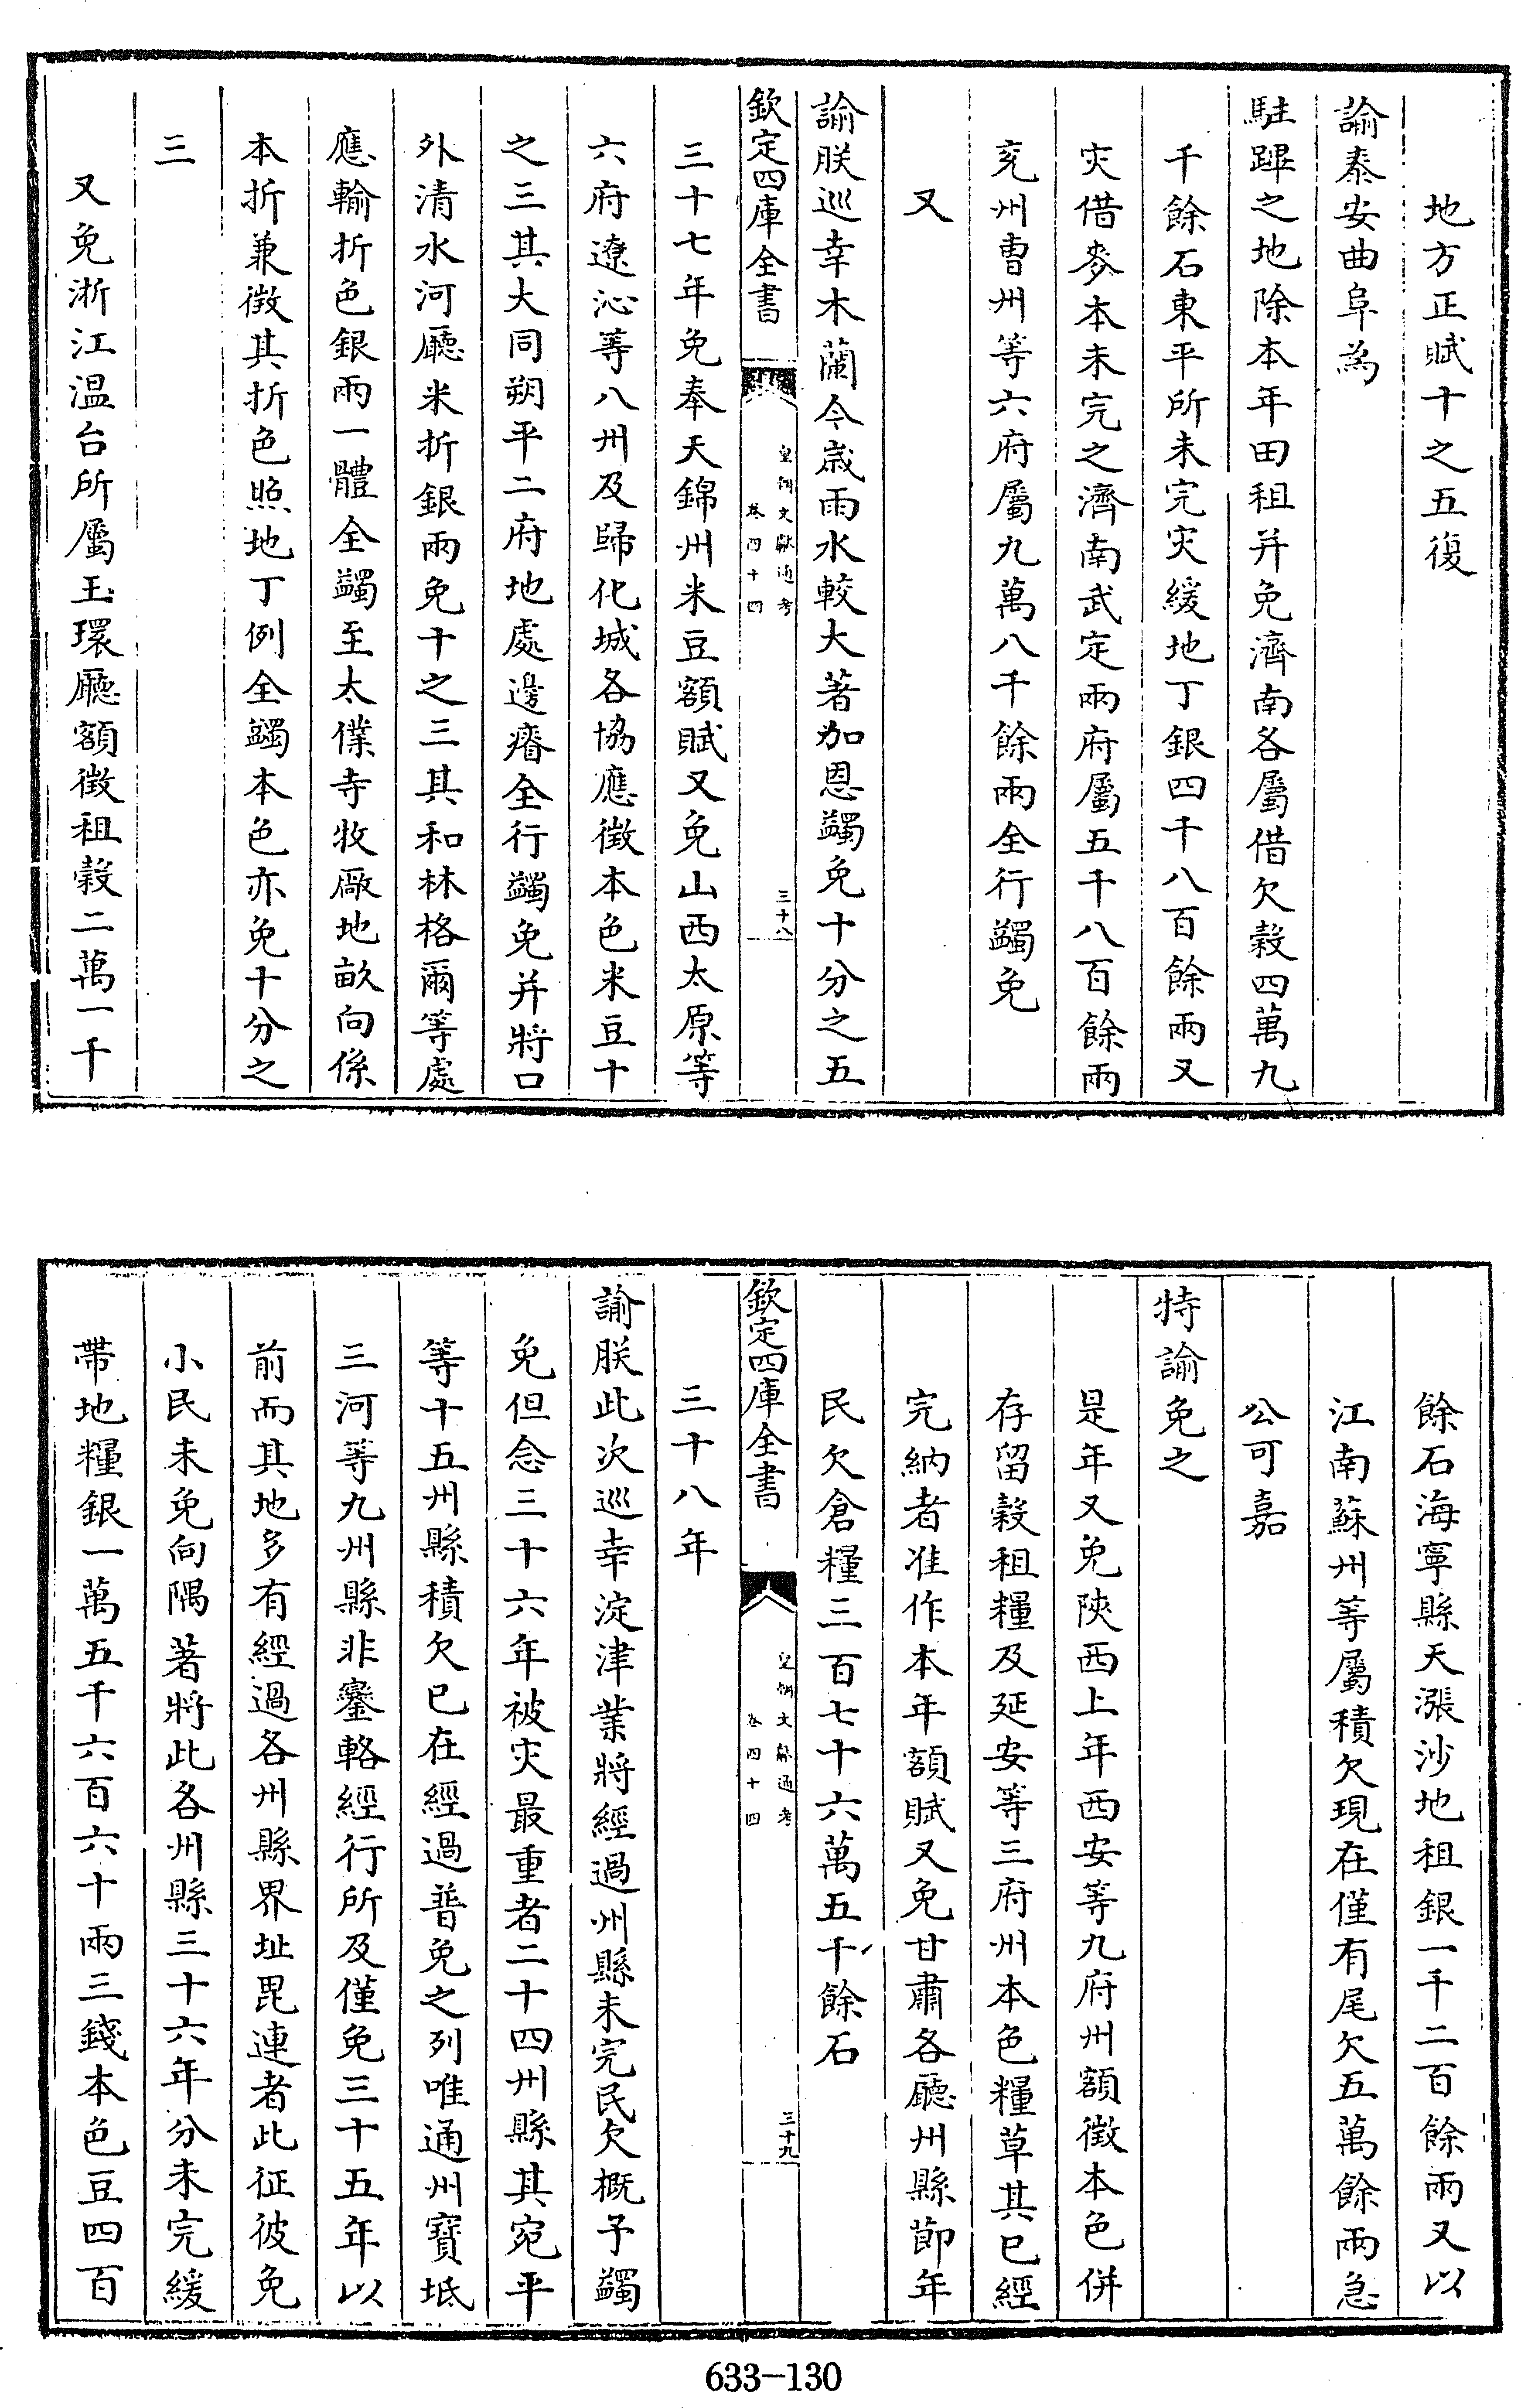 地方正賦十之五復
諭泰安曲阜為
駐蹕之地除本年田租并免濟南各屬借欠穀四萬九
千餘石東平所未完灾緩地丁銀四千八百餘兩又
灾借麥本未完之濟南武定兩府屬五千八百餘兩
兖州曹州等六府屬九萬八千餘兩全行蠲免
又
諭朕巡幸木蘭今嵗雨水較大著加恩蠲免十分之五
欽定四庫全書
皇朝文獻通考
卷四十四
三十八
三十七年免奉天錦州米豆額賦又免山西太原等
六府遼沁等八州及歸化城各協應徴本色米豆十
之三其大同朔平二府地處邊瘠全行蠲免并將口
外清水河廳米折銀兩免十之三其和林格爾等處
應輸折色銀兩一體全蠲至太僕寺牧廠地畝向係
本折兼徴其折色照地丁例全蠲本色亦免十分之
三
又免浙江温台所屬玉環廳額徴租穀二萬一千
餘石海寧縣天漲沙地租銀一千二百餘兩又以
江南蘇州等屬積欠現在僅有尾欠五萬餘兩急
公可嘉
特諭免之
是年又免陜西上年西安等九府州額徴本色併
存留穀租糧及延安等三府州本色糧草其已經
完納者准作本年額賦又免甘肅各廳州縣節年
民欠倉糧三百七十六萬五千餘石
欽定四庫全書
皇朝文獻通考
卷四十四
三十九
三十八年
諭朕此次巡幸淀津業將經過州縣未完民欠概予蠲
免但念三十六年被灾最重者二十四州縣其宛平
等十五州縣積欠已在經過普免之列唯通州寶坻
三河等九州縣非鑾輅經行所及僅免三十五年以
前而其地多有經過各州縣界址毘連者此征彼免
小民未免向隅著將此各州縣三十六年分未完緩
帶地糧銀一萬五千六百六十兩三錢本色豆四百
633-130